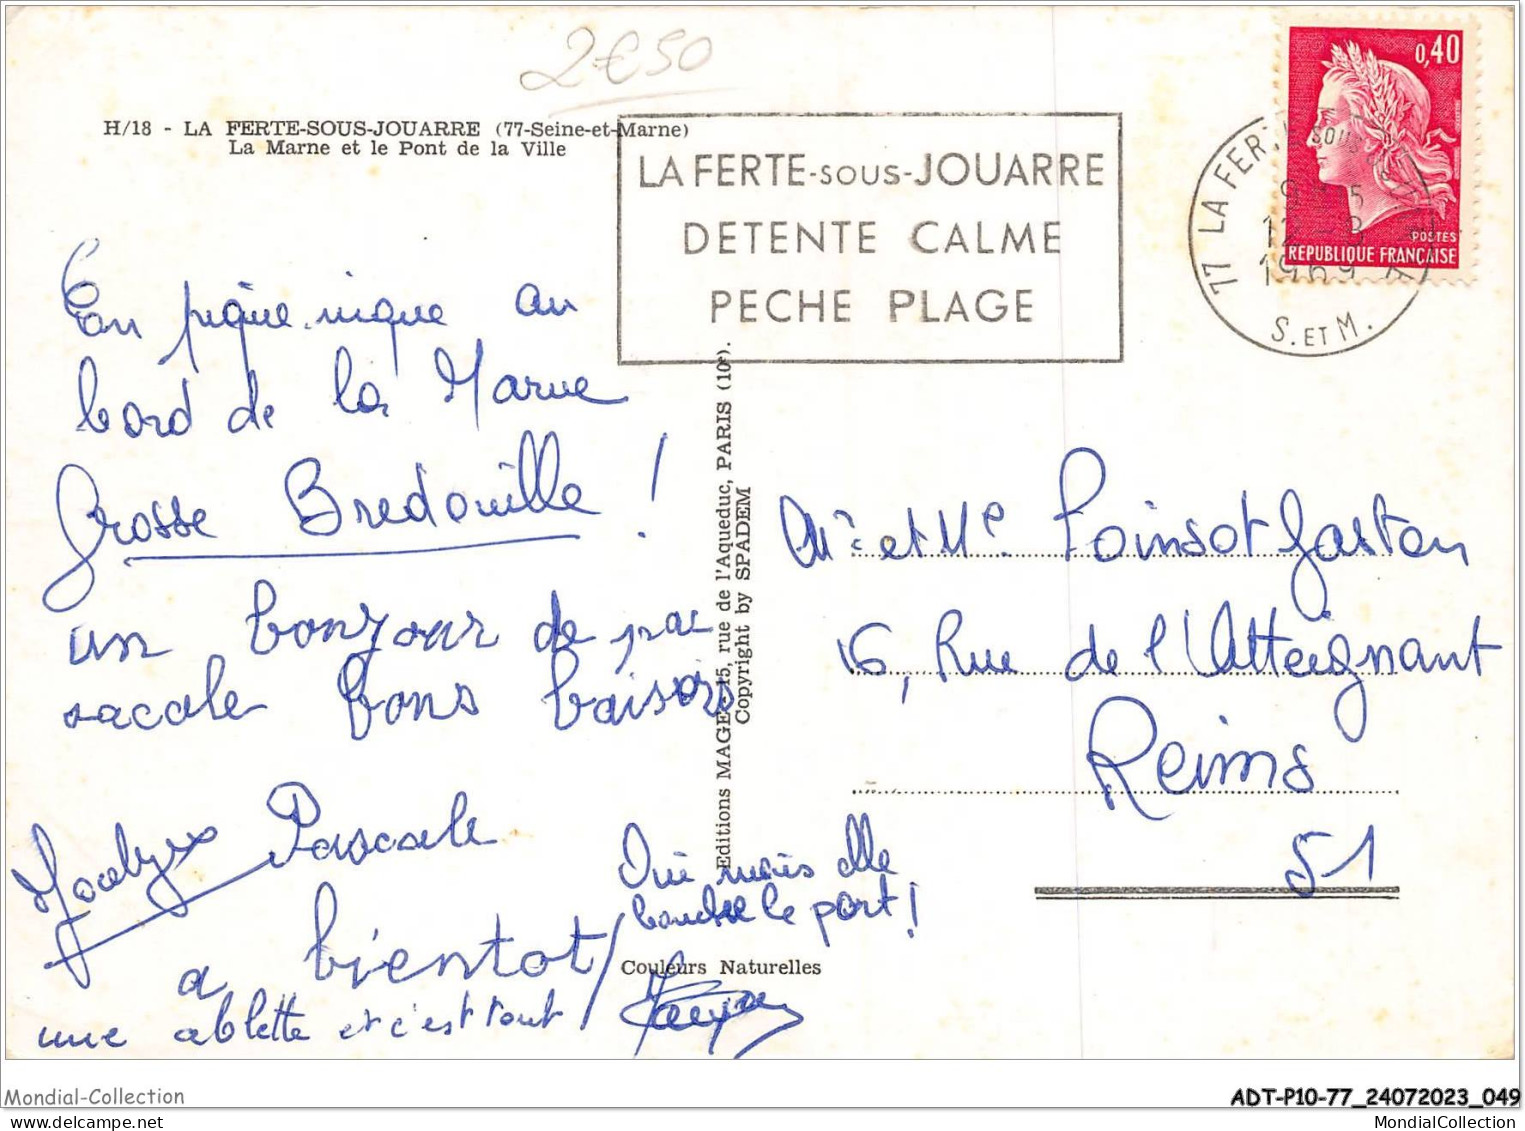 2€50
H/18 - LA FERTE-SOUS-JOUARRE (77-Seine-et-Marne)
La Marne et le Pont de la Ville
LA FERTE-SOUS-JOUARRE
DETENTE CALME
PECHE PLAGE
0,40
POSTES
REPUBLIQUE FRANÇAISE
77 LA FERTE SOUS
12 - 8
1969
S. ET M.
En pique.nique au
bord de la Marne
Grosse Bredouille !
un bonjour de pas
cacale bons baisors
Jocelyne Pascale
a bientot
une ablette et c'est tout
Oui mais elle
bouche le port !
Editions MAGE - 15, rue de l'Aqueduc, PARIS (10e).
Copyright by SPADEM
Couleurs Naturelles
Mr et Me Poinsot Gaston
16, Rue de l'Atteignant
Reims
51
Mondial-Collection
ADT-P10-77_24072023_049
MondialCollection